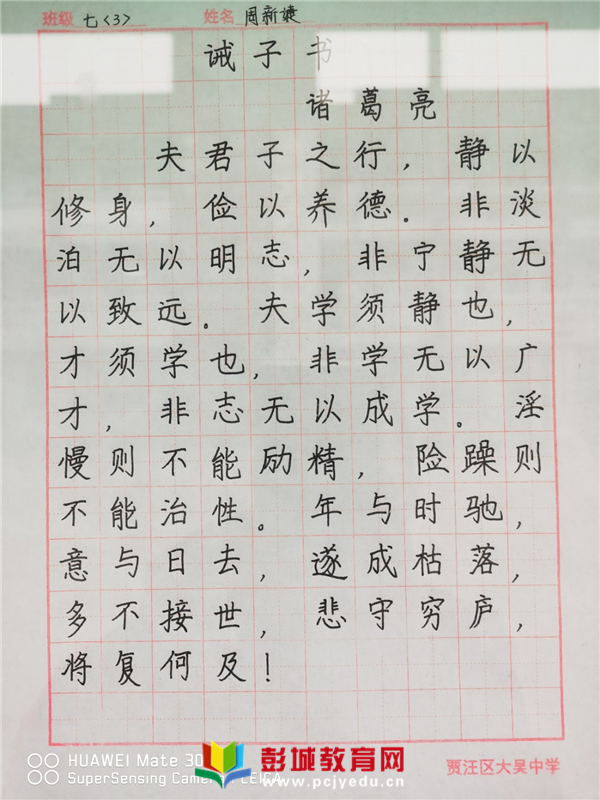 班级 七(3) 姓名 周新婕
诫子书
诸葛亮
夫君子之行，静以
修身，俭以养德。非淡
泊无以明志，非宁静无
以致远。夫学须静也，
才须学也，非学无以广
才，非志无以成学。淫
慢则不能励精，险躁则
不能治性。年与时驰，
意与日去，遂成枯落，
多不接世，悲守穷庐，
将复何及！
HUAWEI Mate 30
SuperSensing Camera LEICA
彭城教育网
www.pcjyedu.cn
贾汪区大吴中学